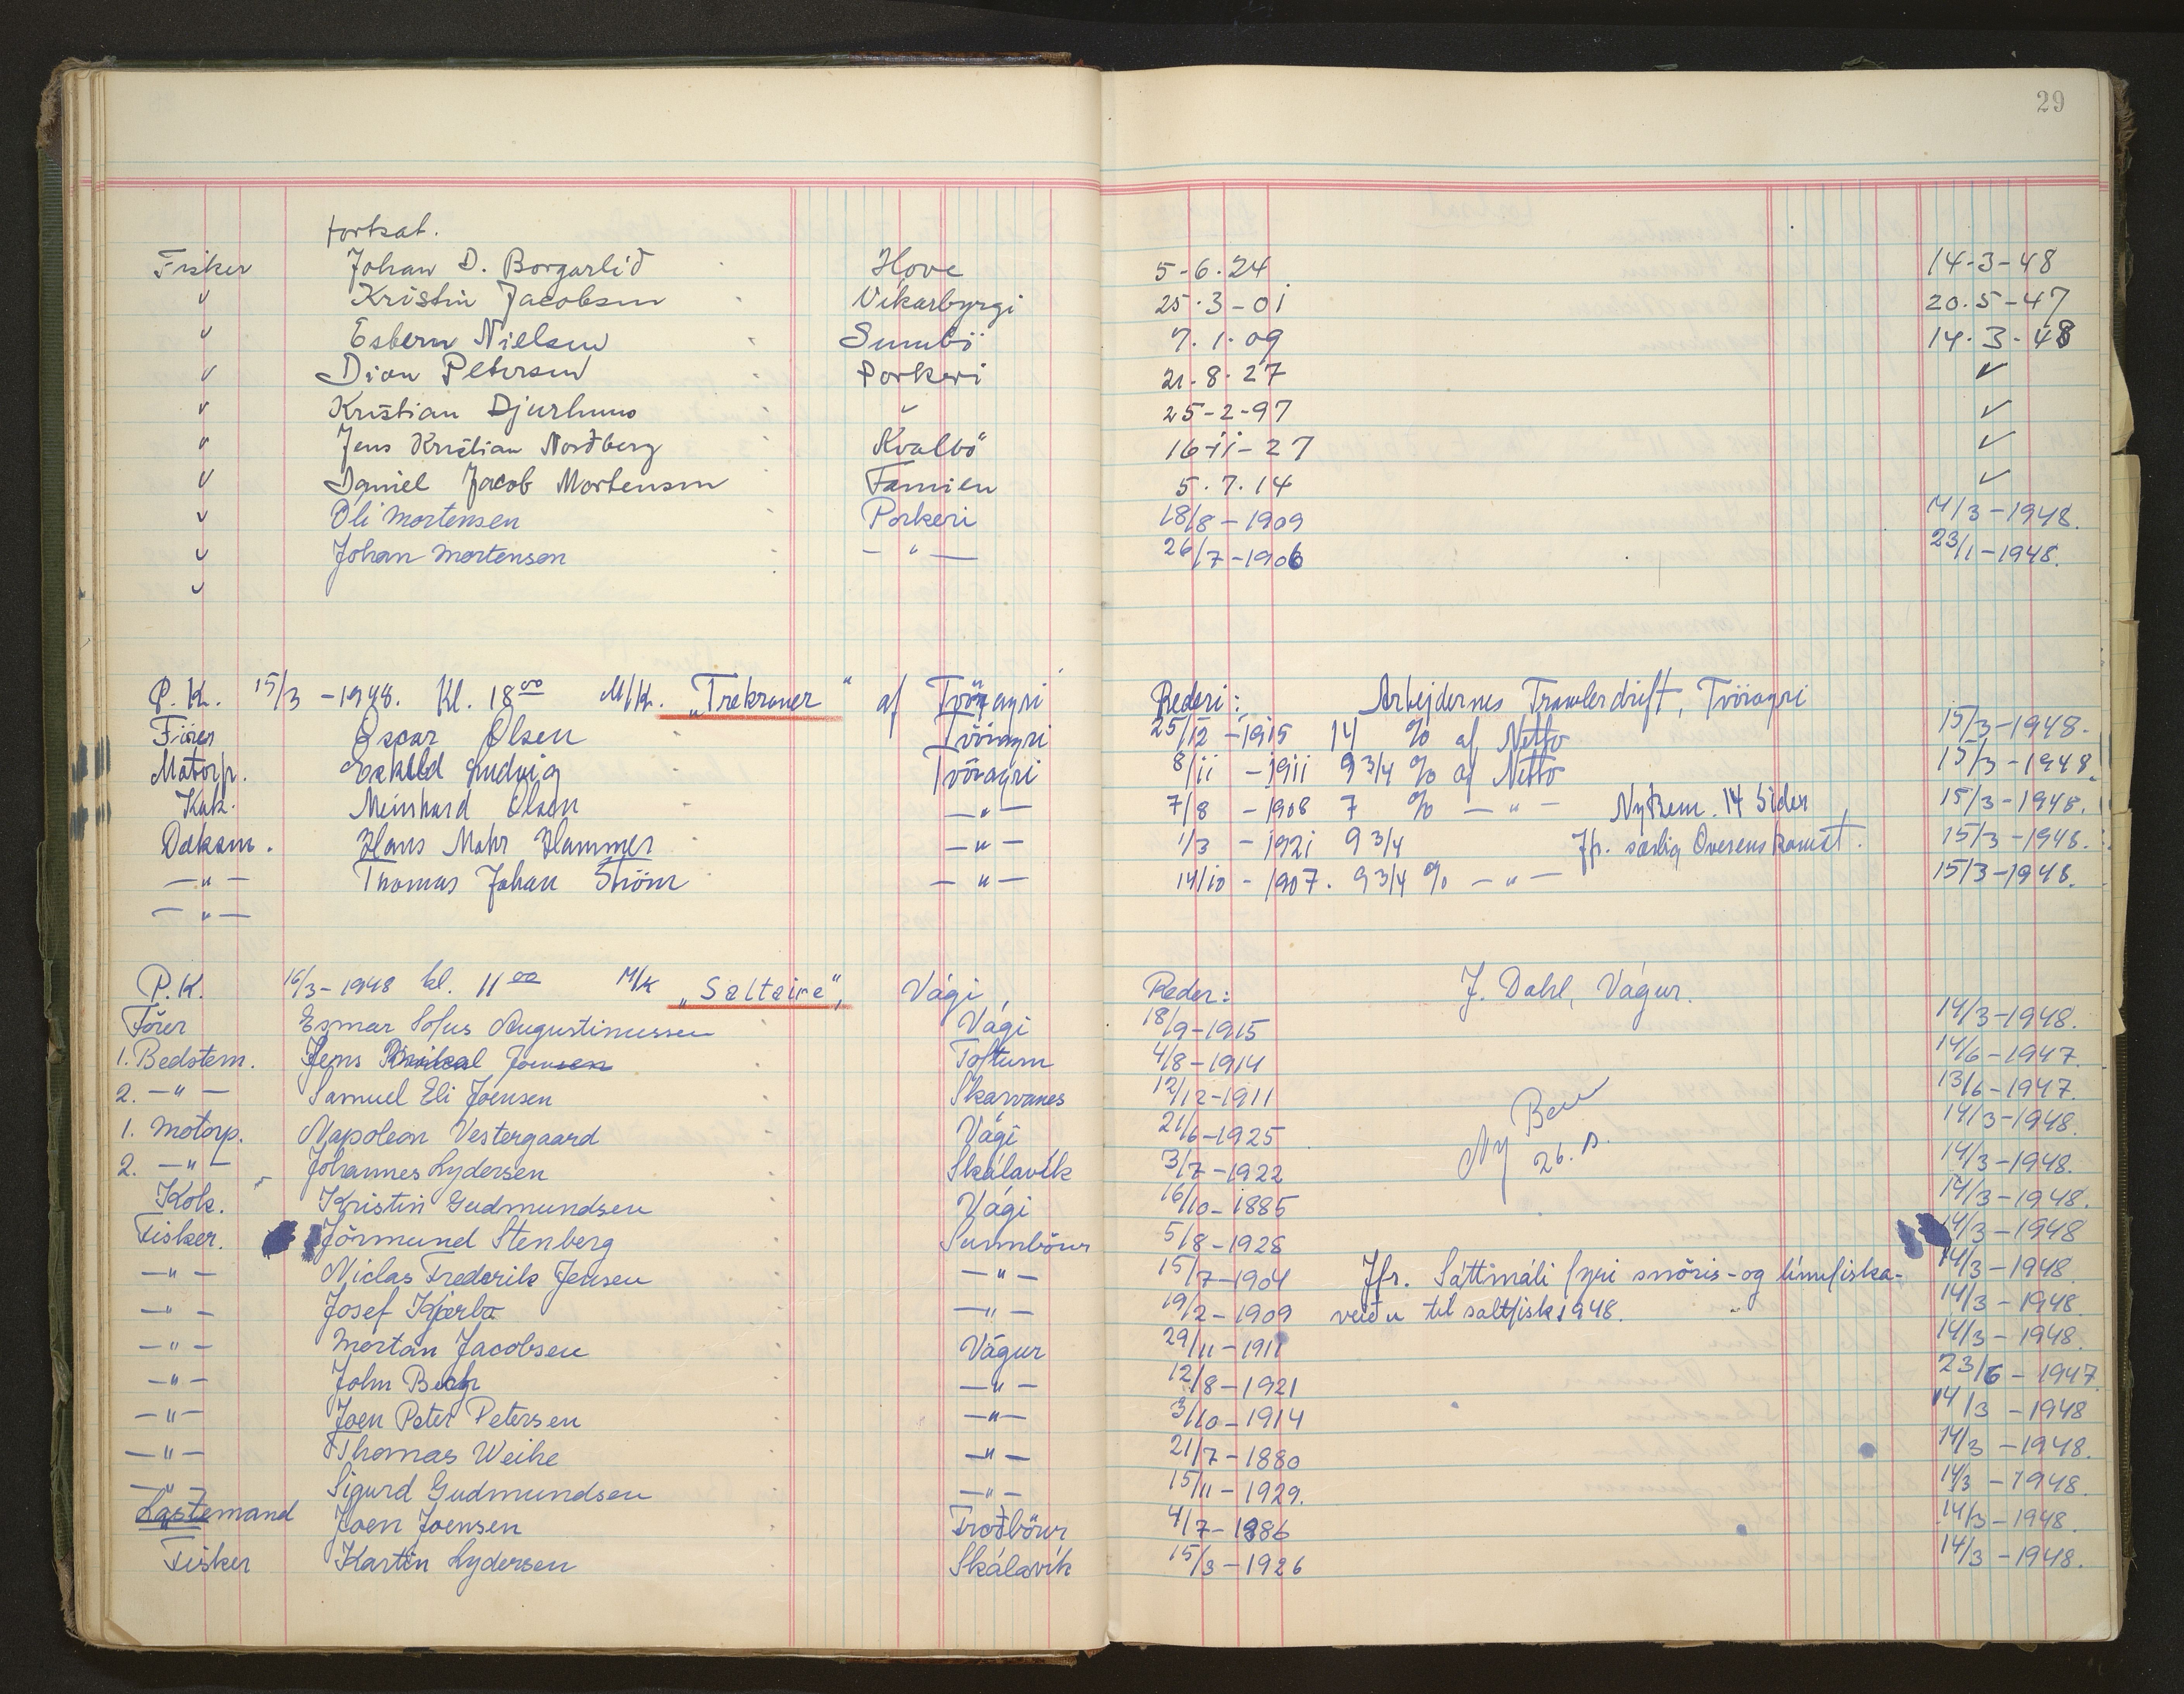 29
fortsat.
Fisker Johan D. Borgarlið Hove 5-6-24 14-3-48
" Kristin Jacobsen Vikarbyrgi 25-3-01 20-5-47
" Esbern Nielsen Sumbö 7.1.09 14.3.48
" Dion Petersen Porkeri 21.8.27 "
" Kristian Djurhuus " 25-2-97 "
" Jens Kristian Norðberg Kvalbö 16-11-27 "
" Daniel Jacob Mortensen Famien 5.7.14 "
" Oli Mortensen Porkeri 18/8-1909 14/3-1948.
" Johan Mortensen - " - 26/7-1906 23/1-1948.
"
P.K. 15/3-1948. Kl. 18 00 M/K. „Trekroner" af Tvöragri Rederi: Arbejdernes Trawlerdrift, Tvöragri
Förer Oscar Olsen Tvöragri 25/12-1915 14 % af Netto 15/3-1948.
Motorp. Eskild Ludvig Tvöragri 8/11-1911 9 3/4 % af Netto 15/3-1948.
Kok. Meinhard Olsen - " - 7/8-1908 7 % - " - Ny Bem. 14 Sider 15/3-1948.
Deksm. Hans Mohr Hammer - " - 1/3-1921 9 3/4 Jfr. særlig Overenskomst. 15/3-1948.
- " - Thomas Johan Ström - " - 14/10-1907. 9 3/4 % - " - 15/3-1948.
- " -
P.K. 16/3-1948 kl. 11 00 M/K „Saltaire", Vági, Reder: J. Dahl, Vágur.
Förer Esmar Sofus Augustinussen Vági 18/9-1915 14/3-1948.
1. Bedstem. Jens Joensen Toftum 4/8-1914 14/6-1947.
2. - " - Samuel Eli Joensen Skarvanes 12/12-1911 13/6-1947.
1. Motorp. Napoleon Vestergaard Vági 21/6-1925 Ny Bem 26. S. 14/3-1948.
2. - " - Johannes Lydersen Skálavík 3/7-1922 14/3-1948.
Kok. Kristin Gudmundsen Vági 16/10-1885 14/3-1948.
Fisker. Jörmund Stenberg Sumnböur 5/8-1928 14/3-1948
- " - Niclas Frederik Jensen - " - 15/7-1904 Jfr. Sáttmáli fyri snöris- og línufiska- 14/3-1948
- " - Josef Kjærbo - " - 19/2-1909 veiðu til saltfisk 1948. 14/3-1948
- " - Mortan Jacobsen Vágur 29/11-1911 14/3-1948.
- " - John Bech - " - 12/8-1921 23/6-1947
- " - Joen Peter Petersen - " - 3/10-1914 14/3-1948
- " - Thomas Weihe - " - 21/7-1880 14/3-1948.
- " - Sigurd Gudmundsen - " - 15/11-1929. 14/3-1948.
Lastemand Joen Joensen Froðböur 4/7-1886 14/3-1948.
Fisker Kartin Lydersen Skálavík 15/3-1926 14/3-1948.